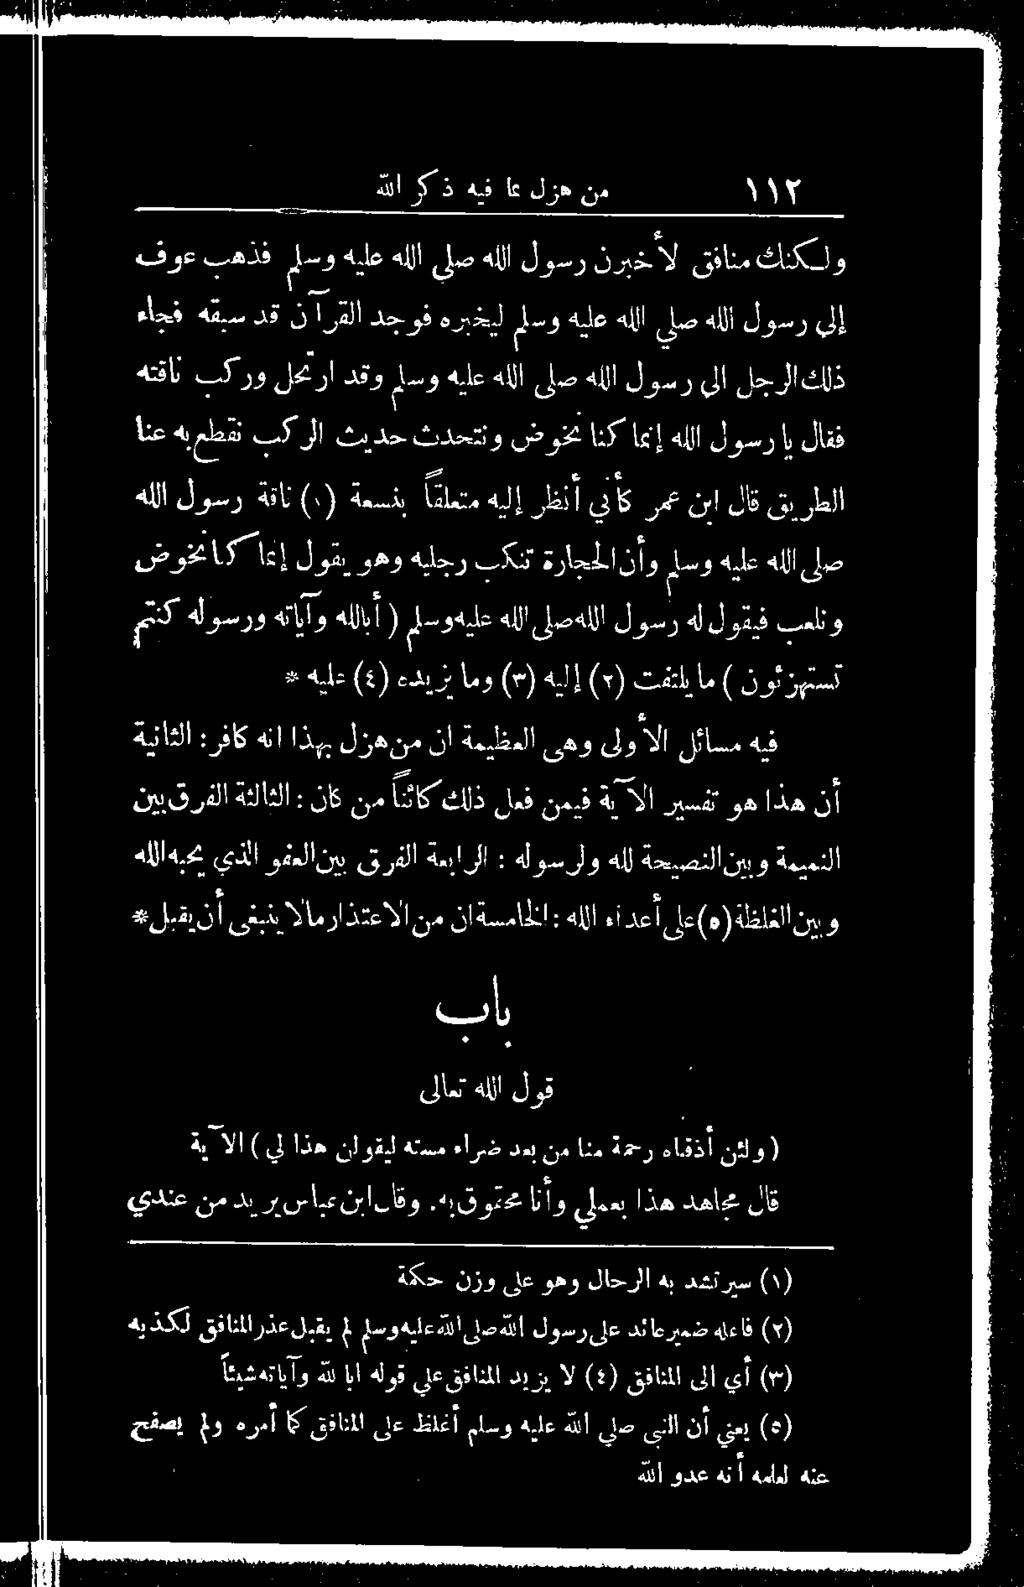 ١١٢ من هزل عا فيه ذكر الله
ولكنك منافق لأخبرن رسول الله صلى الله عليه وسلم فذهب عوف
إلى رسول الله صلي الله عليه وسلم ليخبره فوجد القرآن قد سبقه فجاء
ذلك الرجل الى رسول الله صلى الله عليه وسلم وقد ارتحل وركب ناقته
فقال يا رسول الله إنما كنا نخوض ونتحدث حديث الركب نقطع به عنا
الطريق قال ابن عمر كأني أنظر إليه متعلقاً بنسعة (١) ناقة رسول الله
صلى الله عليه وسلم وأن الحجارة تنكب رجليه وهو يقول إنما كنا نخوض
ونلعب فيقول له رسول الله صلى الله عليه وسلم ( أبالله وآياته ورسوله كنتم
تستهزئون ) ما يلتفت (٢) إليه (٣) وما يزيده (٤) عليه *
فيه مسائل الأولى وهى العظيمة ان من هزل بهذا انه كافر : الثانية
أن هذا هو تفسير الآية فيمن فعل ذلك كائناً من كان : الثالثة الفرق بين
النميمة وبين النصيحة لله ولرسوله : الرابعة الفرق بين العفو الذي يحبه الله
وبين الغلظة (٥) على أعداء الله : الخامسة ان من الاعتذار مالا ينبغى أن يقبل *
باب
قول الله تعالى
( ولئن أذقناه رحمة منا من بعد ضراء مسته ليقولن هذا لي ) الآية
قال مجاهد هذا بعملي وأنا محقوق به . وقال ابن عباس يريد من عندي
(١) سير تشد به الرحال وهو على وزن حكمة
(٢) فاعله ضمير عائد على رسول الله صلى الله عليه وسلم لم يقبل عذر المنافق لكذبه
(٣) أي الى المنافق (٤) لا يزيد المنافق علي قوله ابا لله وآياته شيئاً
(٥) يعني أن النبى صلي الله عليه وسلم أغلظ على المنافق كما أمره ولم يصفح
عنه لعلمه أنه عدو الله